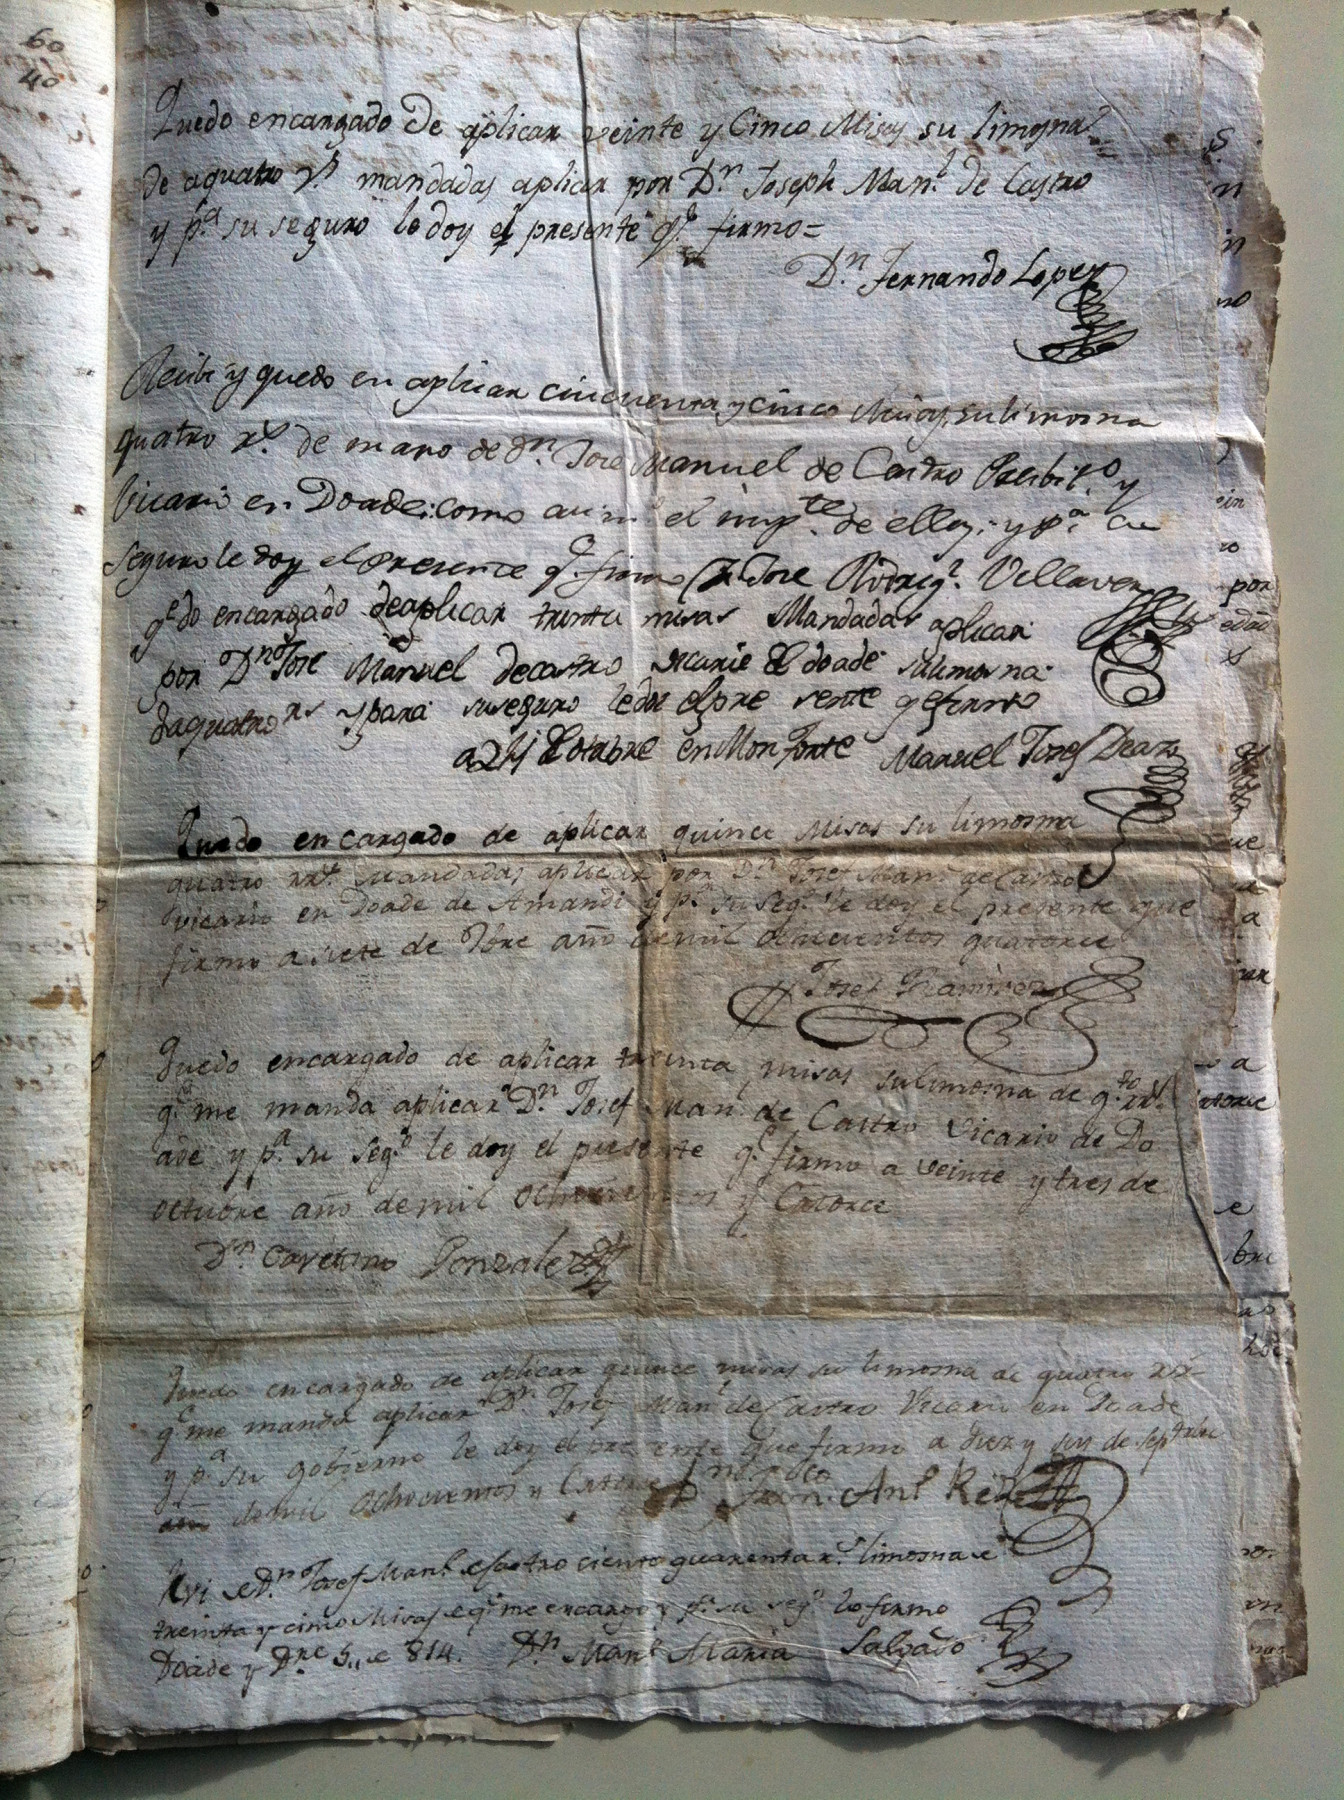 60
40
Quedo encargado de aplicar veinte y Cinco Misas su limosna
de aquatro rs. mandadas aplicar por Dn. Joseph Manl. de Castro
y pa. su seguro le doy el presente qe. firmo=
Dn. Fernando Lopez
Recibi y quedo en aplicar cincuenta y cinco Misas, su limosna
quatro rs. de mano de Dn. Jose Manuel de Castro Presbitro. y
Vicario en Doade: como el impte. de ellas; y pa. su
seguro le doy el presente qe. firmo Jose Rodrigz. Villaver
qedo encargado deaplicar trinta misas Mandadas aplicar
por Dn. Jose Manuel decastro vicario de doade sulimosna
daquatro rs y para suseguro ledoi elpre sente qefirmo
a 24 de otubre en Monforte Manuel Josef Diaz
Quedo encargado de aplicar quince Misas su limosna
quatro rrs. mandadas aplicar por Dn. Josef Manl. de Castro
vicario en Doade de Amandi y pa. su Sego. le doy el presente que
firmo a siete de 7bre año de mil ochocientos quatorce
Josef Ramirez
Quedo encargado de aplicar treinta misas sulimosna de qto. rrs.
qe. me manda aplicar Dn. Josef Manl. de Castro Vicario de Do
ade y pa. su Sego. le doy el presente qe. firmo a veinte y tres de
octubre año de mil ochocientos y Catorce
Dn. Cayetano Gonzalez
Quedo encargado de aplicar quince misas su limosna de quatro rs.
qe. me manda aplicar Dn. Josef Manl. de Castro Vicario en Doade
y pa. su gobierno le doy el presente que firmo a diez y seys de septiembre
año de mil ochocientos y Catorce Anto. Rei
Rvi de Dn. Josef Manl. de Castro ciento quarenta rs. limosna de
treinta y cinco Misas de qe. me encargo y pa. su sego. lo firmo
Doade y Dre 5,, de 814. Dn. Manl. Maria Salgado